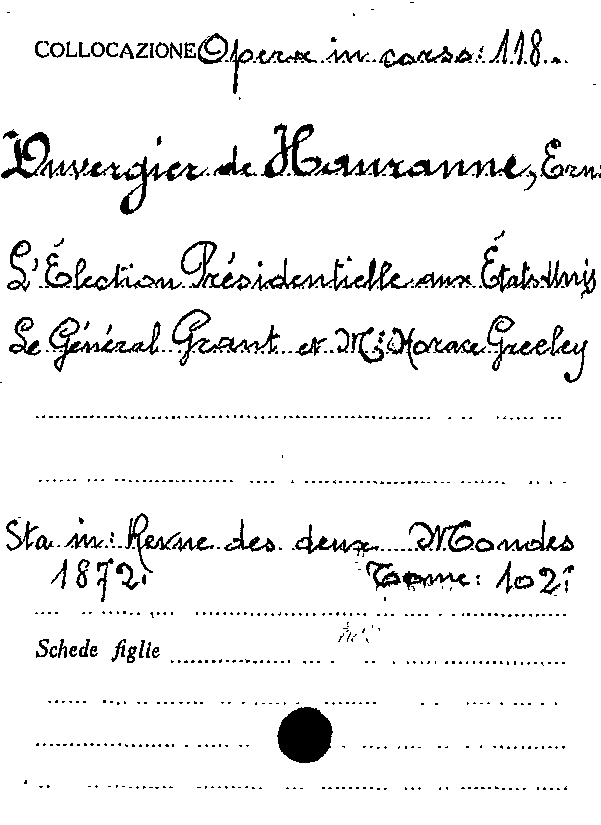 COLLOCAZIONE Opera in corso: 118.
Duvergier de Hauranne, Ern.
L'Élection Présidentielle aux États-Unis
Le Général Grant et Mr. Horace Greeley
Sta in: Revue des deux Mondes
1872. Tome: 102:
Schede figlie